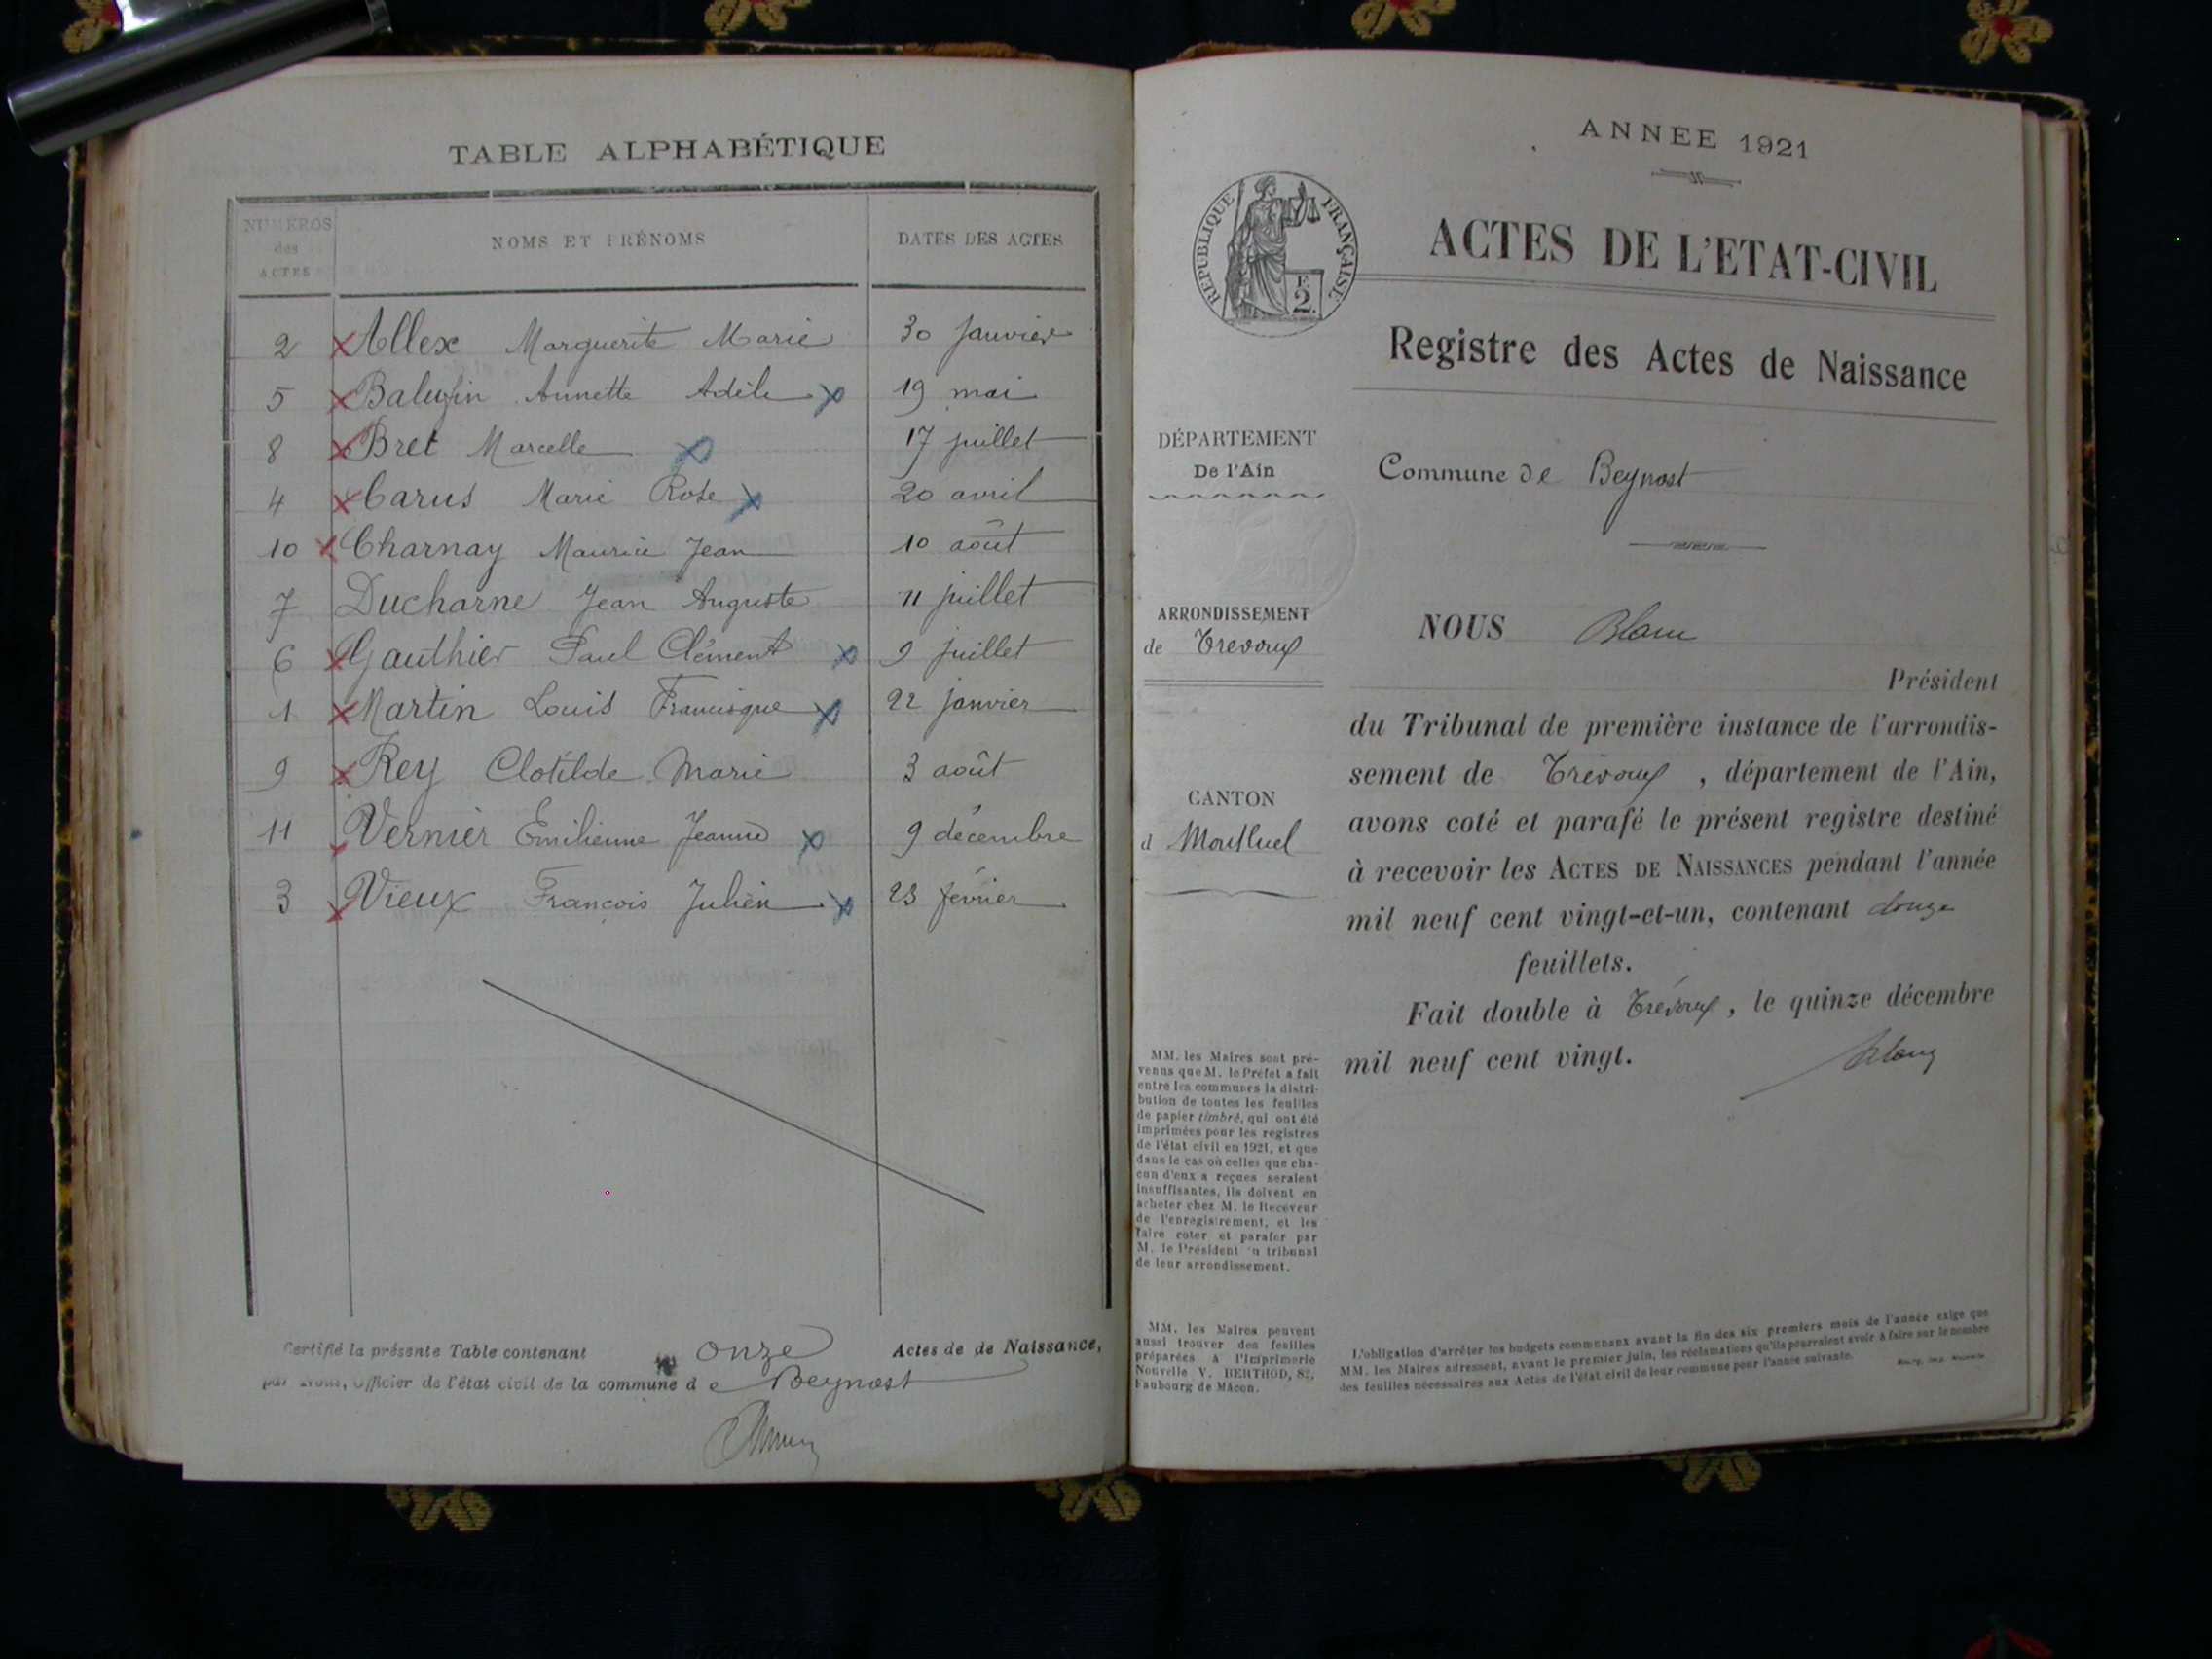 TABLE ALPHABÉTIQUE
NUMÉROS
des
ACTES
NOMS ET PRÉNOMS
DATES DES ACTES
2 Allex Marguerite Marie 30 janvier
5 Annette Adèle 19 mai
8 Bret Marcelle 17 juillet
4 Carus Marie Rose 20 avril
10 Charnay Maurice Jean 10 août
7 Ducharne Jean Auguste 11 juillet
6 Gauthier Paul Clément 9 juillet
1 Martin Louis Francisque 22 janvier
9 Rey Clotilde Marie 3 août
11 Vernier Emilienne Jeanne 9 décembre
3 Vieux François Julien 23 février
Certifié la présente Table contenant onze Actes de de Naissance,
par Nous, Officier de l'état civil de la commune d e Beynost
ANNEE 1921
REPUBLIQUE FRANÇAISE
F
2.
ACTES DE L'ETAT-CIVIL
Registre des Actes de Naissance
DÉPARTEMENT
De l'Ain
Commune de Beynost
ARRONDISSEMENT
de Trévoux
CANTON
d Montluel
NOUS Blanc
Président
du Tribunal de première instance de l'arrondis-
sement de Trévoux, département de l'Ain,
avons coté et parafé le présent registre destiné
à recevoir les ACTES DE NAISSANCES pendant l'année
mil neuf cent vingt-et-un, contenant douze
feuillets.
Fait double à Trévoux, le quinze décembre
mil neuf cent vingt.
MM. les Maires sont pré-
venus que M. le Préfet a fait
entre les communes la distri-
bution de toutes les feuilles
de papier timbré, qui ont été
imprimées pour les registres
de l'état civil en 1921, et que
dans le cas où celles que cha-
cun d'eux a reçues seraient
insuffisantes, ils doivent en
acheter chez M. le Receveur
de l'enregistrement, et les
faire coter et parafer par
M. le Président du tribunal
de leur arrondissement.
MM. les Maires peuvent
aussi trouver des feuilles
préparées à l'Imprimerie
Nouvelle V. BERTHOD, 82,
Faubourg de Mâcon.
L'obligation d'arrêter les budgets communaux avant la fin des six premiers mois de l'année exige que
MM. les Maires adressent, avant le premier juin, les réclamations qu'ils pourraient avoir à faire sur le nombre
des feuilles nécessaires aux Actes de l'état civil de leur commune pour l'année suivante.